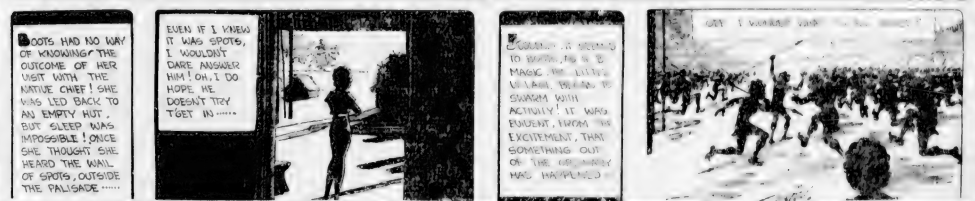 BOOTS HAD NO WAY
OF KNOWING THE
OUTCOME OF HER
VISIT WITH THE
NATIVE CHIEF! SHE
WAS LED BACK TO
AN EMPTY HUT,
BUT SLEEP WAS
IMPOSSIBLE! ONCE
SHE THOUGHT SHE
HEARD THE WAIL
OF SPOTS, OUTSIDE
THE PALISADE ......
EVEN IF I KNEW
IT WAS SPOTS,
I WOULDN'T
DARE ANSWER
HIM! OH, I DO
HOPE HE
DOESN'T TRY
T'GET IN ......
SUDDENLY, IT SEEMED
TO BOOTS, AS IF BY
MAGIC, THE LITTLE
VILLAGE BEGAN TO
SWARM WITH
ACTIVITY! IT WAS
EVIDENT, FROM THE
EXCITEMENT, THAT
SOMETHING OUT
OF THE ORDINARY
HAS HAPPENED
I WONDER WHAT